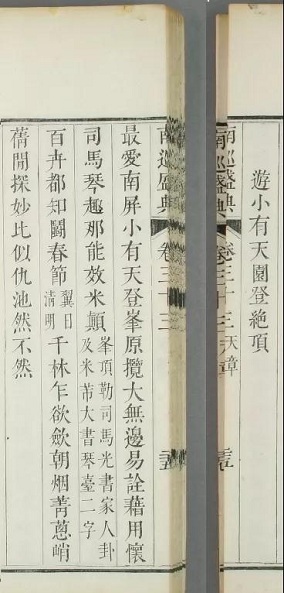 遊小有天園登絕頂
南巡盛典 卷三十三 天章
南巡盛典 卷三十三
最愛南屏小有天登峯原攬大無邊易詮藉用懷
司馬琴趣那能效米顛 峯頂勒司馬光書家人卦
及米芾大書琴臺二字
百卉都知鬭春節 翼日
清明 千林乍欲歛朝烟菁蔥峭
蒨閒探妙比似仇池然不然